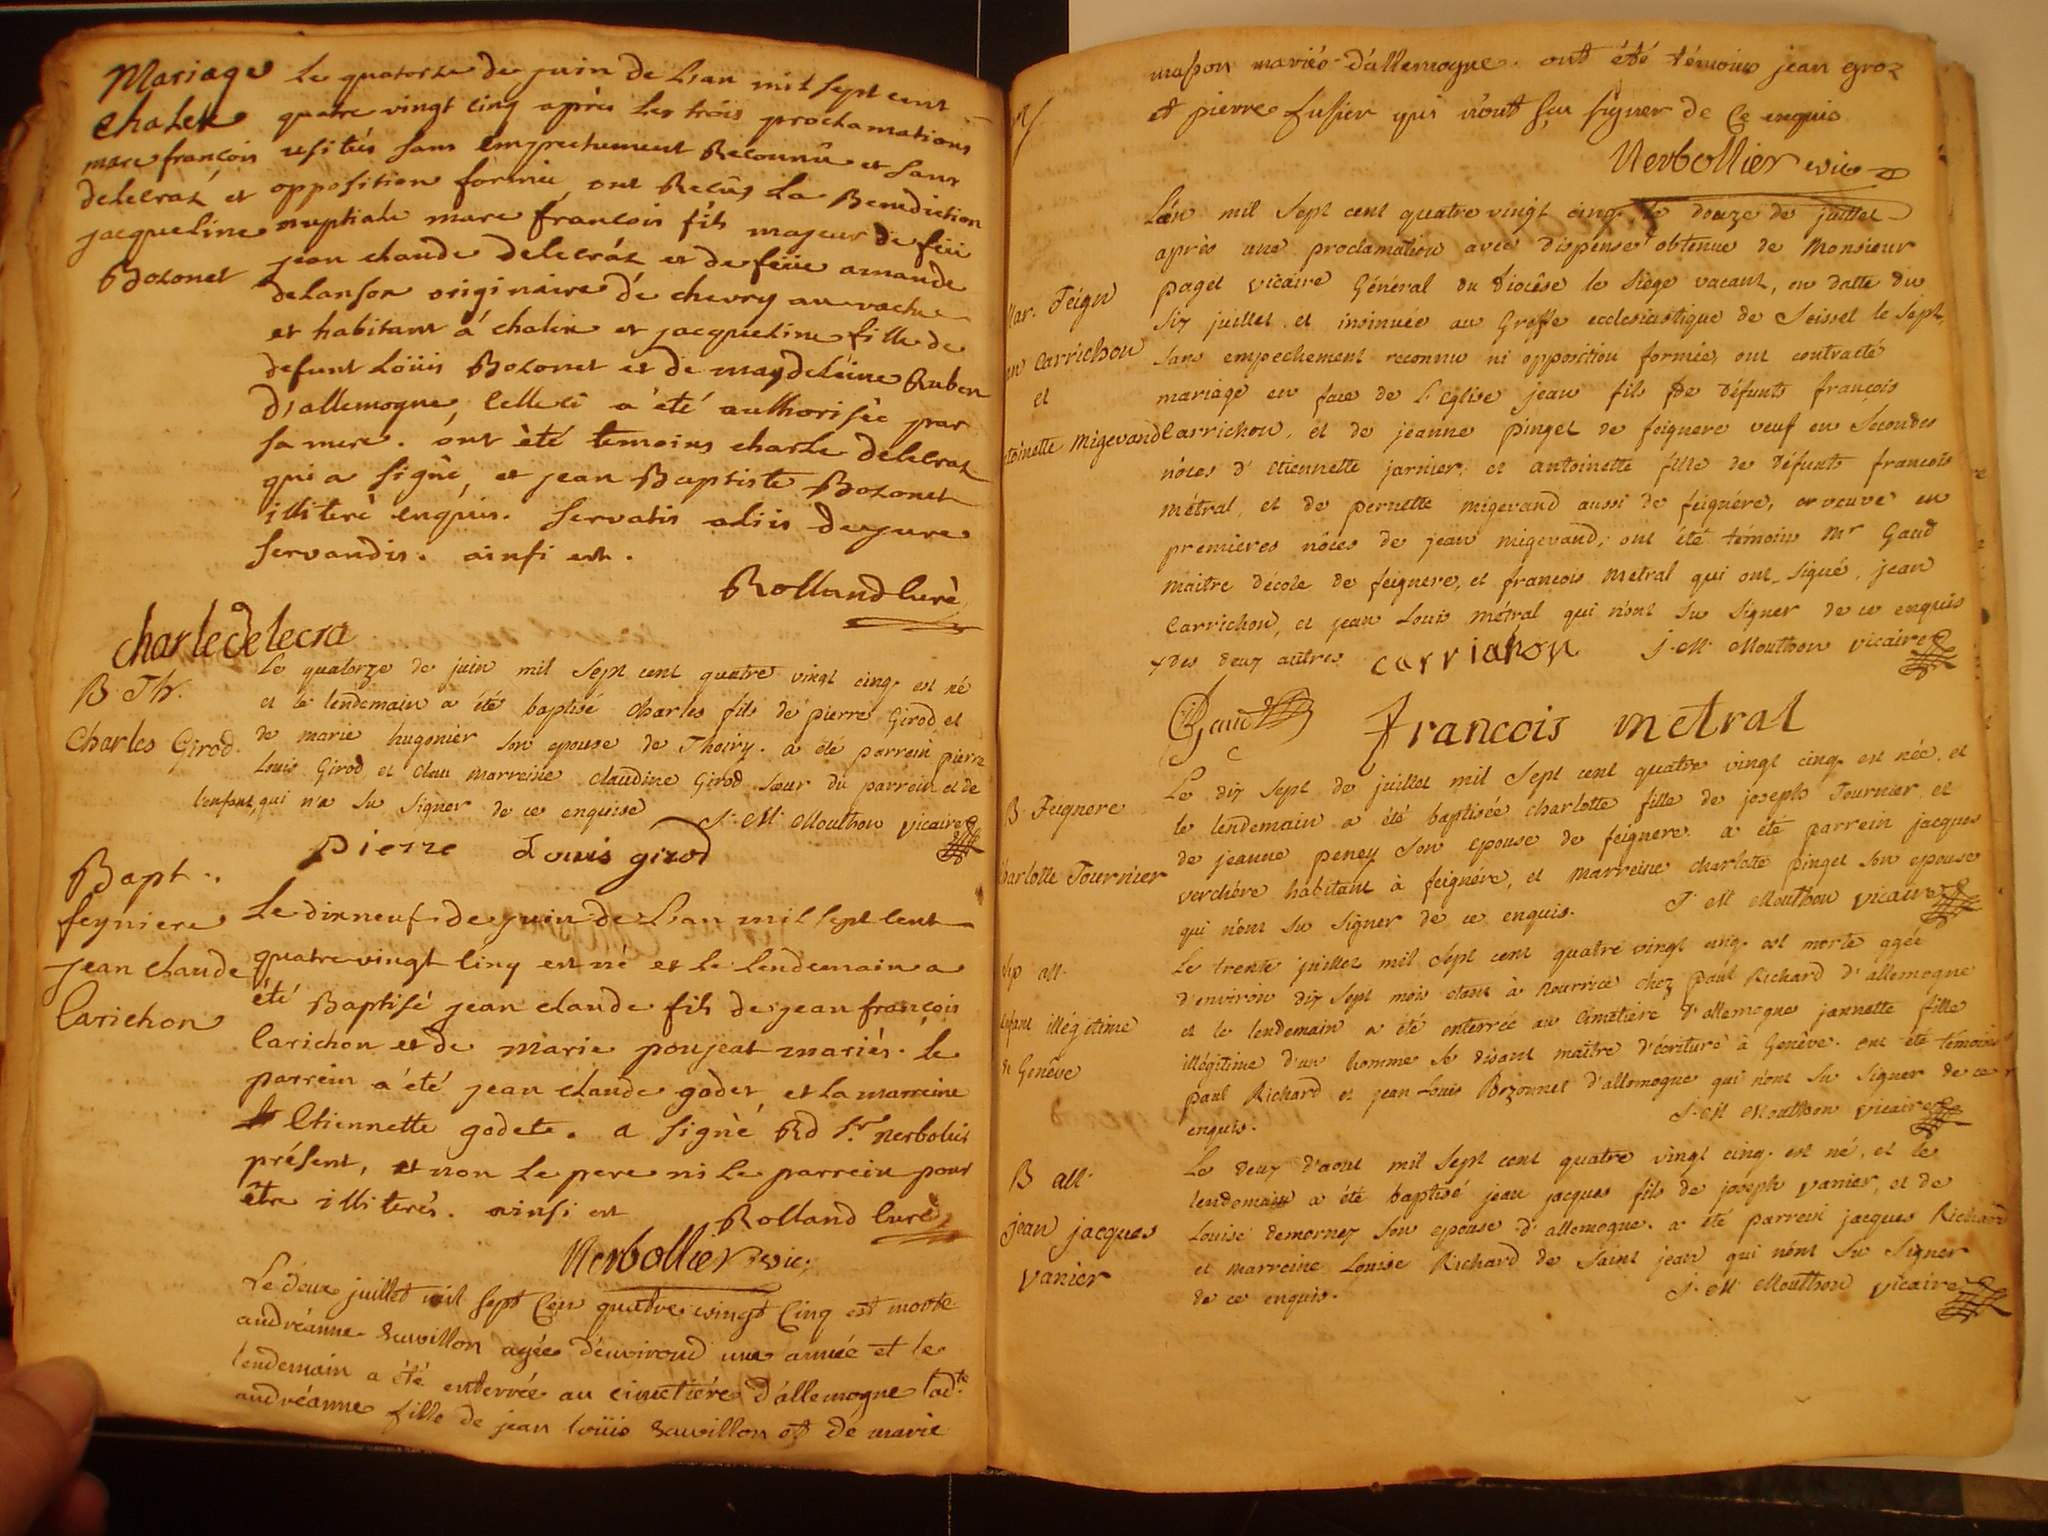 Mariage
Chalex
marc françois
delecraz et
jacqueline
Bozonet
Le quatorze de juin de L'an mil sept cent
quatre vingt cinq après les trois proclamations
usitées sans empechement Reconnû et sans
opposition formée, ont Reçûs La Benediction
nuptiale marc françois fils majeur de feu
jean claude delecráz et de feüe amande
delanson originaire de chevry au
et habitant á chalex et jacqueline fille de
defunt Loüis Bozonet et de magdeleine Ruben
d'allemogne, Celleci a été authorisée par
sa mere. ont été temoins charle delecraz
qui a signé, et jean Baptiste Bozonet
illiteré enquis. servatis aliis de jure
servandis. ainsi est.
Rolland Curé
charle delecra
B Th.
Charles Girod
Le quatorze de juin mil sept cent quatre vingt cinq. est né
et le lendemain a été baptisé Charles fils de pierre Girod et
de marie hugonier son epouse de Thoiry. a été parrein pierre
Louis Girod et marreine claudine Girod sœur du parrein et de
l'enfant, qui n'a su signer de ce enquise J. M. Mouthon vicaire
Pierre Louis girod
Bapt.
feyniere
jean claude
Carichon
Le dixneuf de juin de L'an mil sept cent
quatre vingt Cinq est né et le lendemain a
été Baptisé jean claude fils de jean françois
Carichon et de marie poujeat mariés. le
parrein a été jean claude godet, et la marreine
Etiennette godete. a signé Rd Sr. Nerbolier
présent, et non le pere ni le parrein pour
être illiterés. ainsi est Rolland Curé
Nerbollier vic.
Le deux juillet mil sept Cen quatre vingt Cinq est morte
andréanne Suvillon agée d'environd une année et le
lendemain a été enterrée au cimetiére d'allemogne ladte
andréanne fille de jean loüis Suvillon et de marie
masson mariés d'allemogne. ont été témoins jean groz
et pierre fusier qui n'ont sçu signer de Ce enquis
Nerbollier vic
Mar. Feign
Jean Carrichon
et
Antoinette Migevand
L'an mil sept cent quatre vingt cinq. le douze de juillet
après une proclamation avec dispense obtenue de Monsieur
paget vicaire Général du Diocêse le siége vacant, en datte du
six juillet et insinuée au Greffe ecclesiastique de Seissel le sept,
sans empechement reconnu ni opposition formée, ont contracté
mariage en face de l'Eglise jean fils de défunts françois
Carrichon, et de jeanne pinget de feignere veuf en secondes
nôces d'etiennette jarnier; et antoinette fille de défunts francois
métral, et de pernette migevand aussi de feignére, et veuve en
premieres nôces de jean migevand; ont été témoins Mr Gaud
maitre d'école de feignere, et francois metral qui ont signé, jean
Carrichon, et jean Louis métral qui n'ont su signer de ce enquis
x des deux autres carrichon J. M. Mouthon vicaire
Gaud francois metral
B Feignere
Charlotte Tournier
Le dix sept de juillet mil sept cent quatre vingt cinq. est née, et
le lendemain a été baptisée charlotte fille de joseph Tournier et
de jeanne peney son epouse de feignere. a été parrein jacques
verchére habitant à feignére, et marreine charlotte pinget son epouse
qui n'ont su signer de ce enquis. J. M. Mouthon vicaire
Sep all.
Enfant illégitime
de Genève
Le trente juillet mil sept cent quatre vingt cinq. est morte agée
d'environ dix sept mois etant à nourrice chez paul Richard d'allemogne
et le lendemain a été enterrée au Cimetiere d'allemogne jannette fille
illégitime d'un homme se disant maître d'écriture à Genève. ont été témoins
paul Richard et jean Louis Bozonnet d'allemogne qui n'ont su signer de ce
enquis. J. M. Mouthon vicaire
B all.
jean jacques
vanier
Le deux d'aout mil sept cent quatre vingt cinq. est né, et le
lendemain a été baptisé jean jacques fils de joseph vanier, et de
Louise demornex son epouse d'allemogne. a été parrein jacques Richard
et marreine Louise Richard de Saint jean qui n'ont su signer
de ce enquis. J. M. Mouthon vicaire